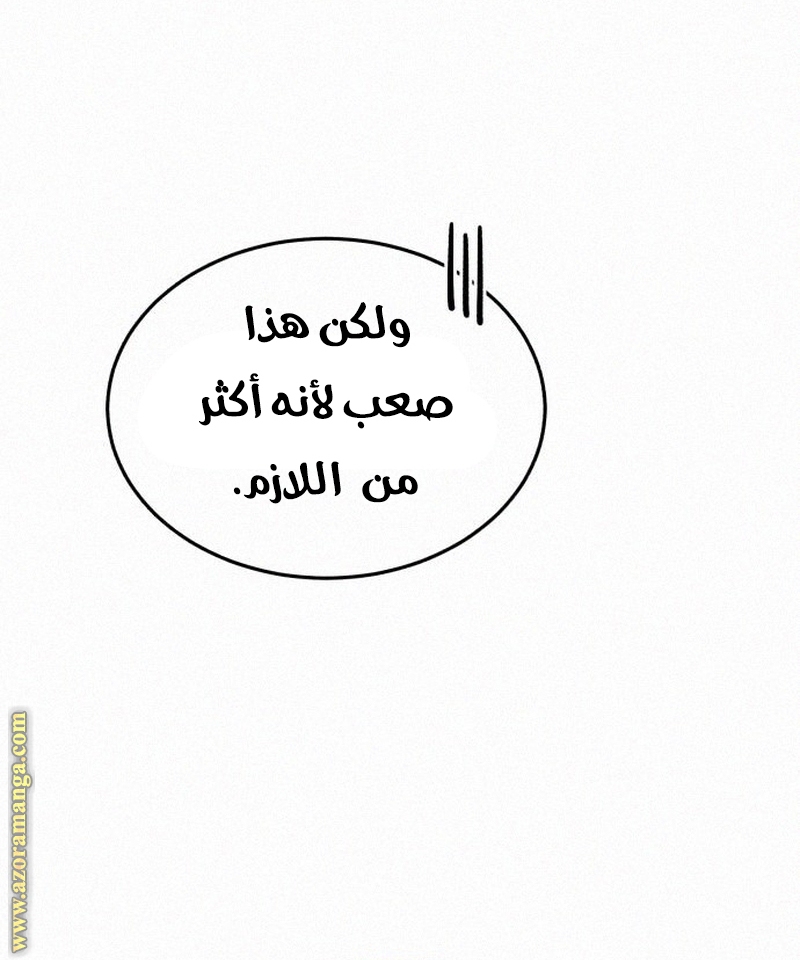 ولكن هذا
صعب لأنه أكثر
من اللازم.
www.azoramanga.com